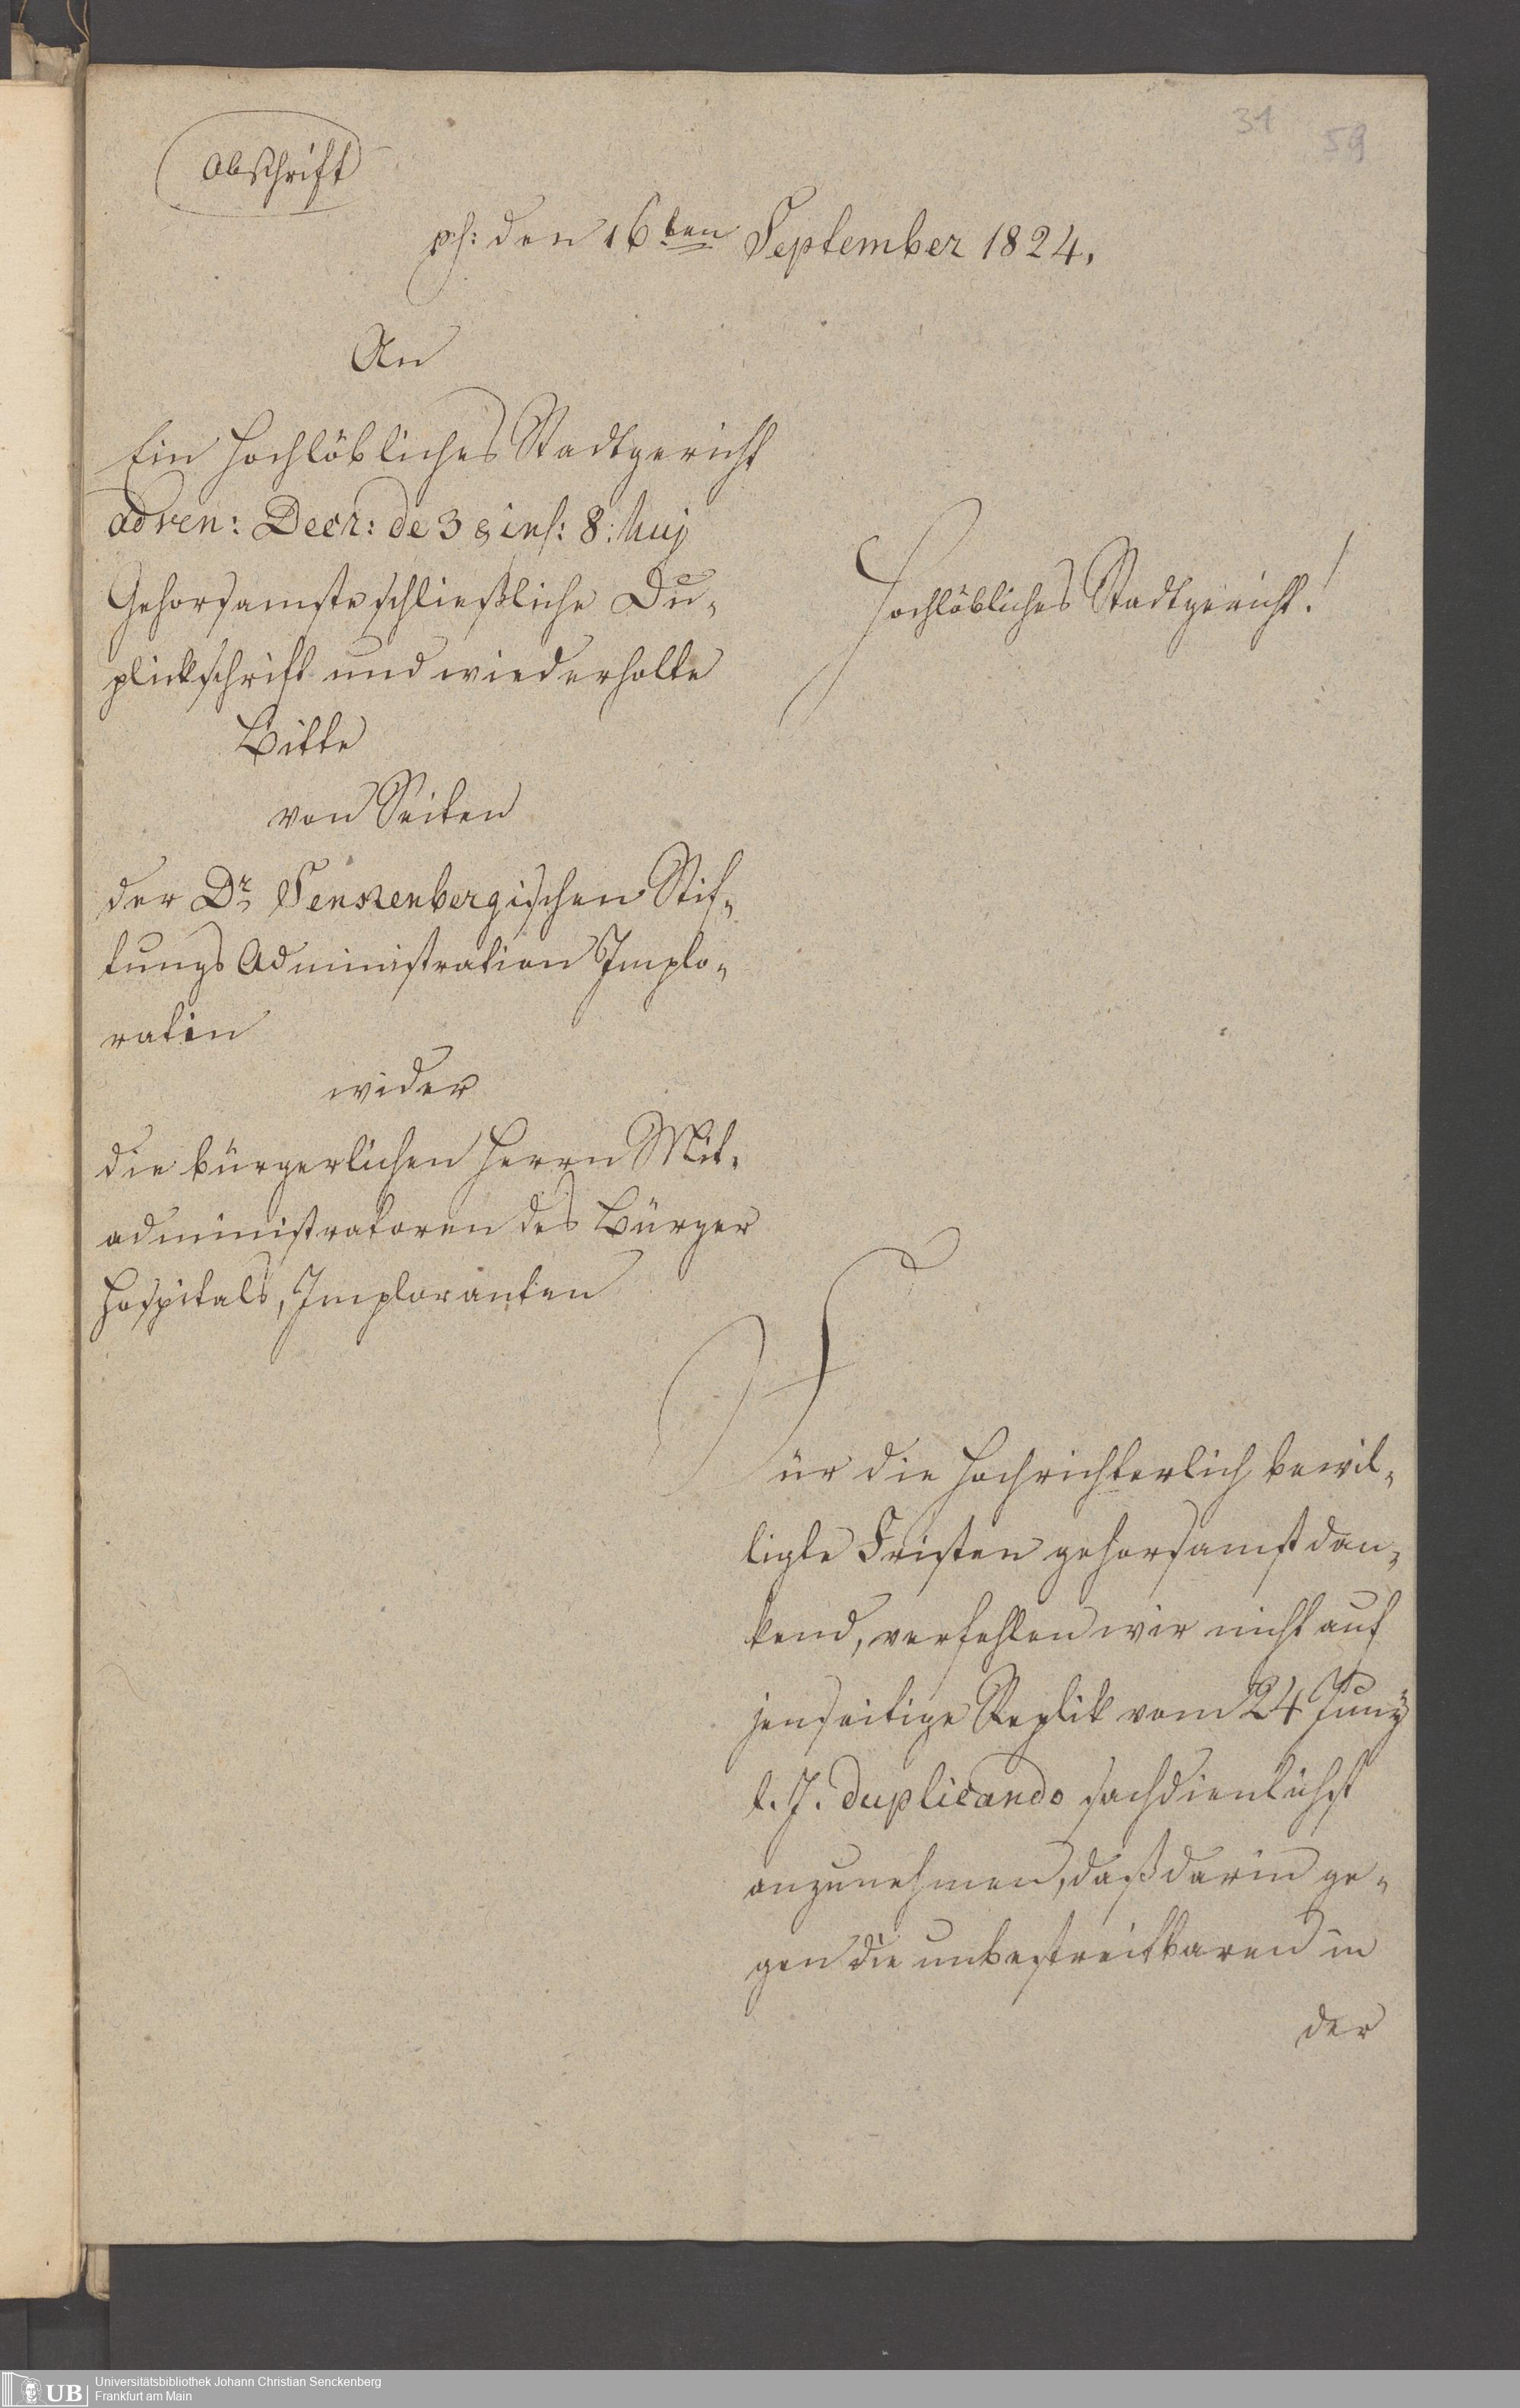 31 59
Abschrift
ps: den 16ten September 1824.
An
Ein Hochlöbliches Stadtgericht
ad ven: Decr: de 3 & ins: 8: huj
Gehorsamste schließliche Du-
plickschrift und wiederholte
Bitte
von Seiten
der Dr Senkenbergischen Stif-
tungs Administration Implo-
ratin
wider
die bürgerlichen Herrn Mit-
administratoren des Bürger
Hospitals, Imploranten
Hochlöbliches Stadtgericht!
Für die Hochrichterlich bewil-
ligte Fristen gehorsamst dan-
kend, verfehlen wir nicht auf
jenseitige Replik vom 24 Juny
l. J. duplicando sachdienlichst
anzunehmen, daß darin ge-
gen die unbestreitbaren in
der
UB
Universitätsbibliothek Johann Christian Senckenberg
Frankfurt am Main